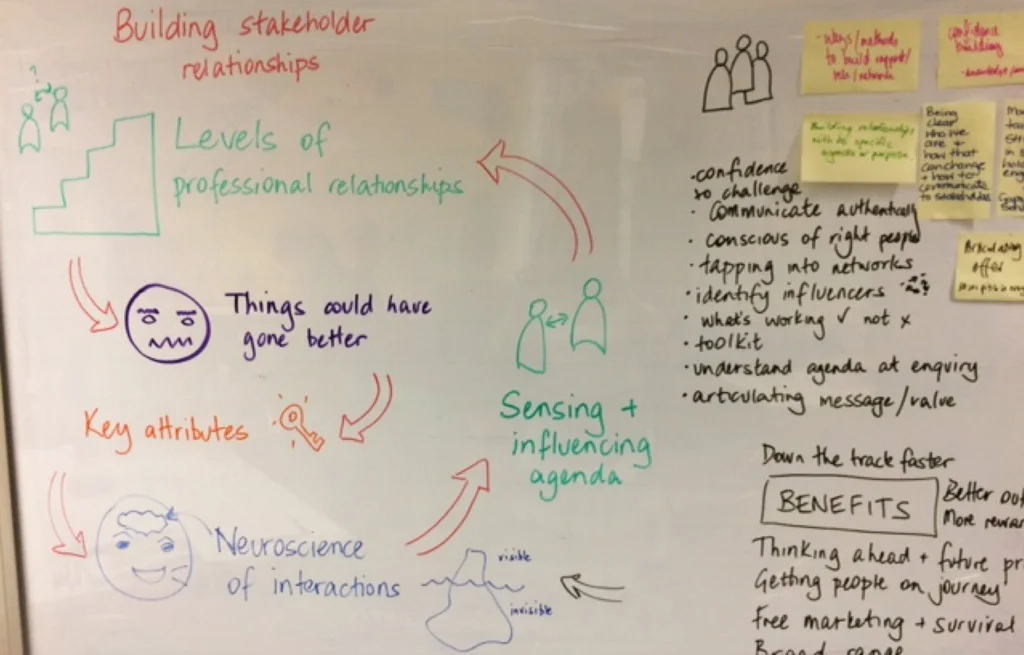 Building stakeholder
relationships
?
Levels of
professional relationships
Things could have
gone better
Key attributes
Neuroscience
of interactions
visible
invisible
Sensing +
influencing
agenda
- ways/methods
to build rapport/
/network
confidence
building
Building relationships
with specific
agenda or purpose.
Being
clear
who we
are +
how that
can change
+ how to
communicate
to stakeholders
Articulating
offer
·confidence
to challenge
· communicate authentically
· conscious of right people
· tapping into networks
· identify influencers
· what's working ✓ not x
· toolkit
· understand agenda at enquiry
· articulating message/value
Down the track faster
BENEFITS
Better
More
Thinking ahead + future
Getting people on journey
Free marketing + survival
Brand range